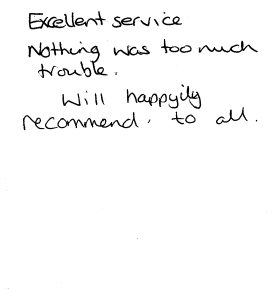 Excellent service
Nothing was too much
trouble.
Will happyily
recommend. to all.